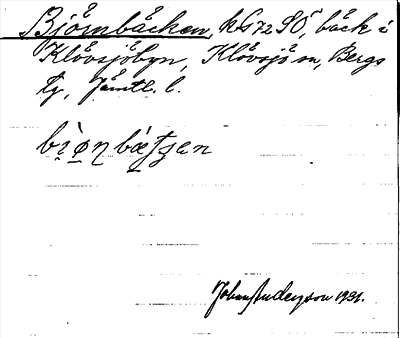 Björnbäcken, kG72SO, bäck i
Klövsjöbyn, Klövsjö sn, Bergs
tg, Jämtl. l.
Johan Anderson 1931.